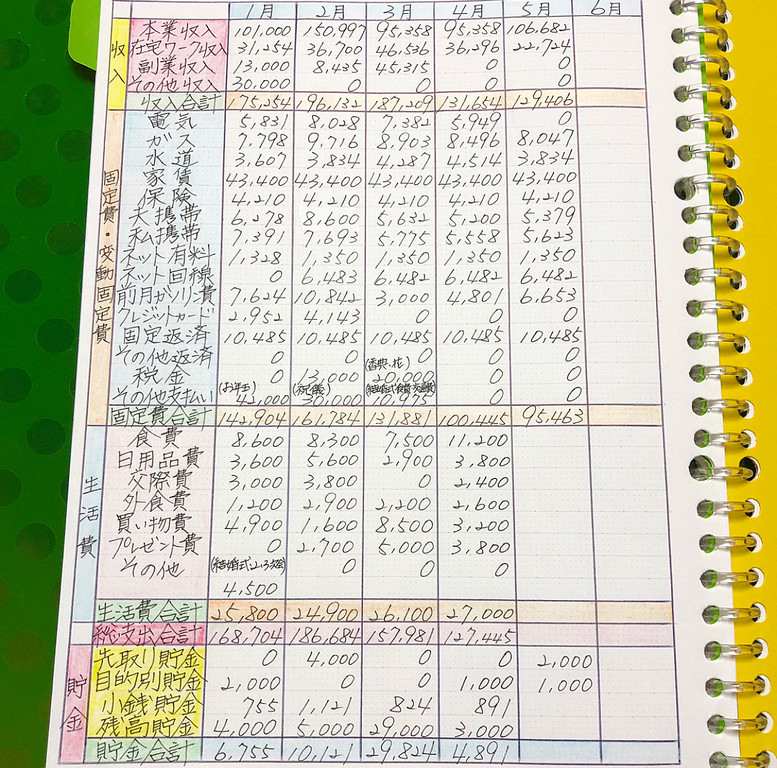 1月 2月 3月 4月 5月 6月
収入
本業収入 101,000 150,997 95,358 95,358 106,682
在宅ワーク収入 31,254 36,700 46,536 36,296 22,724
副業収入 13,000 8,435 45,315 0 0
その他収入 30,000 0 0 0 0
収入合計 175,254 196,132 187,209 131,654 129,406
固定費・変動固定費
電気 5,831 8,028 7,382 5,949 0
ガス 7,798 9,716 8,903 8,496 8,047
水道 3,607 3,834 4,287 4,514 3,834
家賃 43,400 43,400 43,400 43,400 43,400
保険 4,210 4,210 4,210 4,210 4,210
夫携帯 6,278 8,600 5,632 5,200 5,379
私携帯 7,391 7,693 5,775 5,558 5,623
ネット有料 1,328 1,350 1,350 1,350 1,350
ネット回線 0 6,483 6,482 6,482 6,482
前月ガソリン費 7,624 10,842 3,000 4,801 6,653
クレジットカード 2,952 4,143 0 0 0
固定返済 10,485 10,485 10,485 10,485 10,485
その他返済 0 0 0 0 0
(香典、花)
税金 0 13,000 20,000 0 0
(お年玉) (祝儀)
その他支払い 42,000 30,000 10,975 0 0
固定費合計 142,904 161,784 131,881 100,445 95,463
生活費
食費 8,600 8,300 7,500 11,200
日用品費 3,600 5,600 2,900 3,800
交際費 3,000 3,800 0 2,400
外食費 1,200 2,900 2,200 2,600
買い物費 4,900 1,600 8,500 3,200
プレゼント費 0 2,700 5,000 3,800
その他 (結婚式2、3次会) 0 0 0
4,500
生活費合計 25,800 24,900 26,100 27,000
総支出合計 168,704 186,684 157,981 127,445
貯金
先取り貯金 0 4,000 0 0 2,000
目的別貯金 2,000 0 0 1,000 1,000
小銭貯金 755 1,121 824 891
残高貯金 4,000 5,000 29,000 3,000
貯金合計 6,755 10,121 29,824 4,891